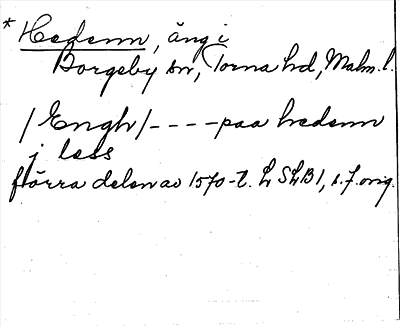 * Hedenn, äng i
Borgeby sn, Torna hd, Malm. l.
/Engh/ - - - - paa hedenn
j less
förra delen av 1570-t. LSLB1, s. 7. orig.